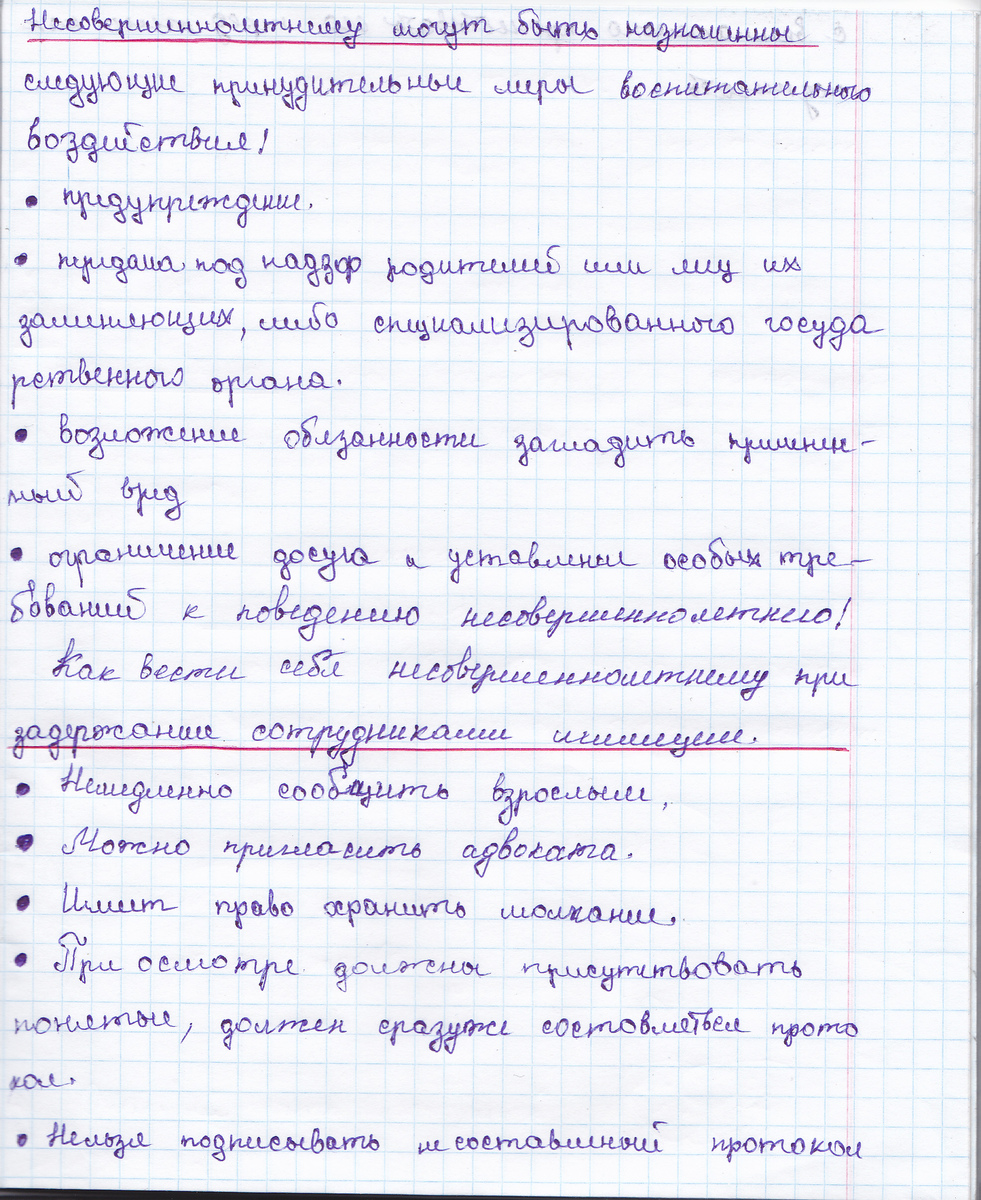 Несовершеннолетнему могут быть назначенны
следующие принудительные меры воспитательного
воздействия!
• предупреждение.
• передача под надзор родителей или лиц их
заменяющих, либо специализированного госуда
рственного органа.
• возложение обязанности загладить причинен-
ный вред
• ограничение досуга и уставление особых тре-
бований к поведению несовершеннолетнего!
Как вести себя несовершеннолетнему при
задержании сотрудниками милиции.
• Немедленно сообщить взрослым,
• Можно пригласить адвоката.
• Имеет право хранить молчание.
• При осмотре должны присутствовать
понятые, должен сразуже составляться прото
кол.
• Нельзя подписывать не составленный протокол